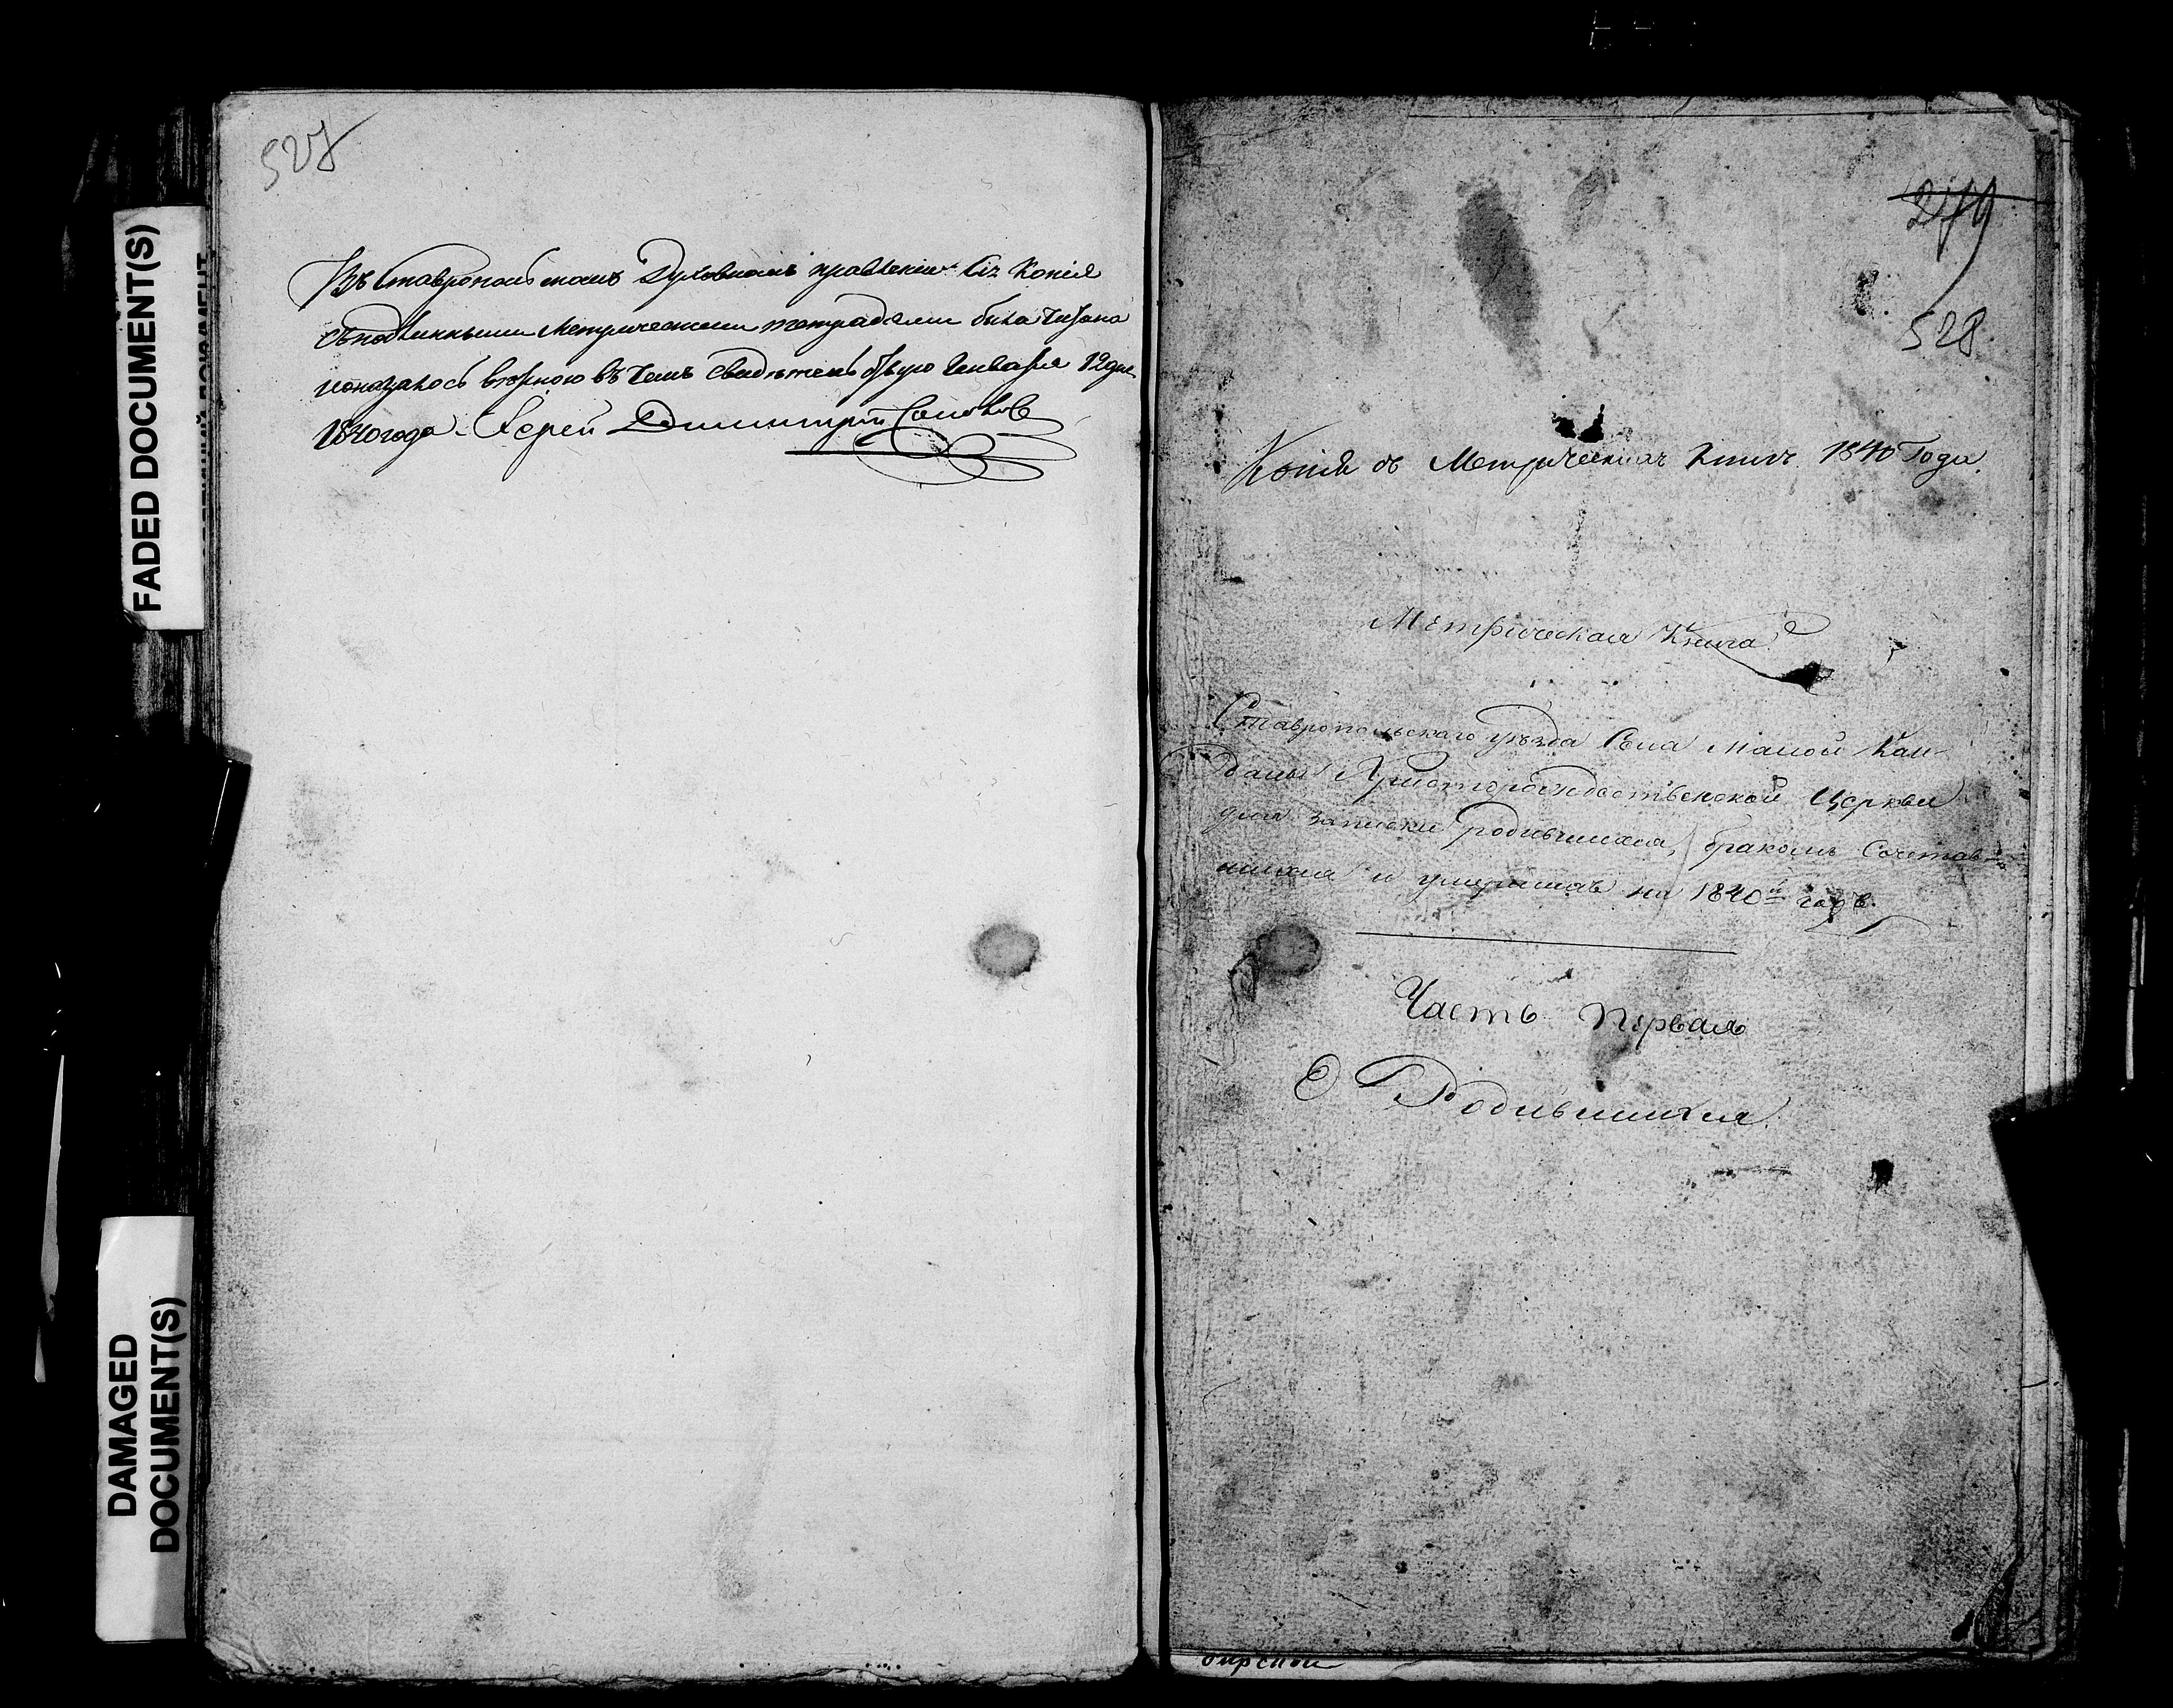 527
Въ Ставропольскомъ Духовномъ правленіи Сія Копія
съ подлинными Метрическими тетрадями была читана
и оказалось вѣрною въ чемъ свидѣтельствую Генваря 12 дня
1840 года Іерей Димитрій
279
528
Копія съ Метрическихъ Книгъ 1840 Года.
Метрическая Книга
Ставропольскаго уѣзда Села Малой Кан-
далы Христорождественской Церкви
для записки родившихся, бракомъ Сочетав-
шихся и умершихъ на 1840й годъ.
Часть Первая
О Родившихся.
бирской
FADED DOCUMENT(S)
DAMAGED
DOCUMENT(S)